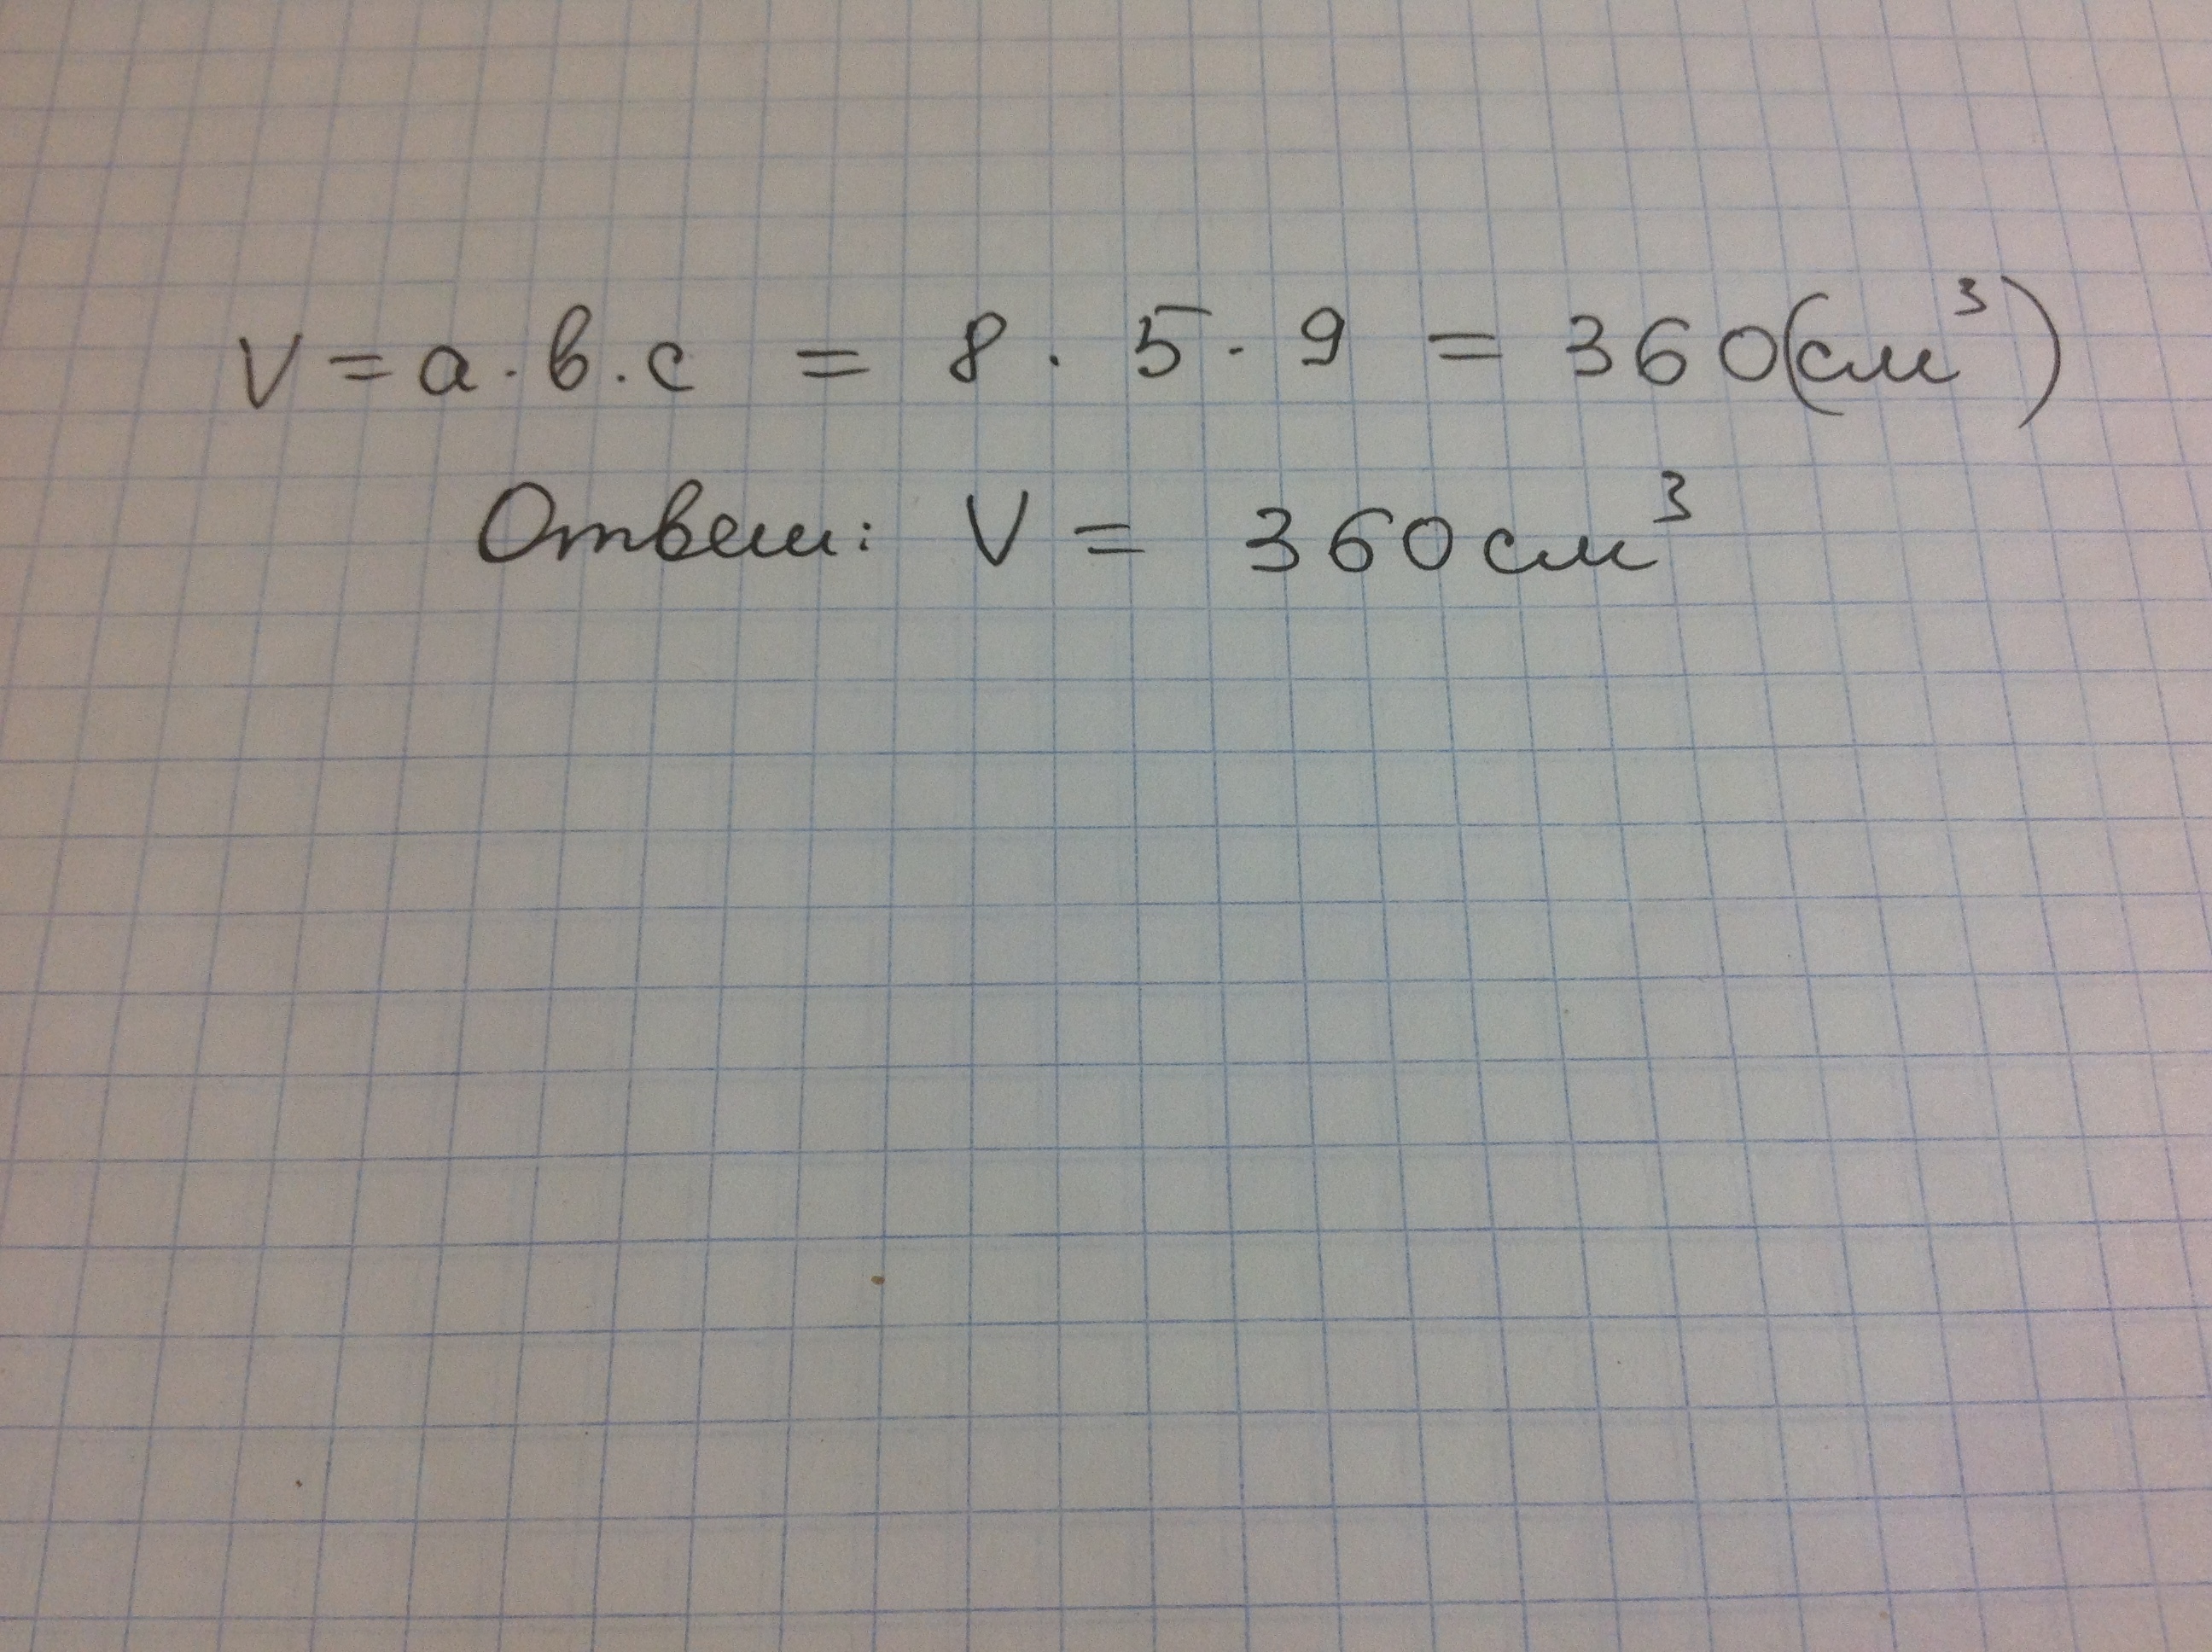 V = a · b · c = 8 · 5 · 9 = 360 (см³)
Ответ: V = 360 см³